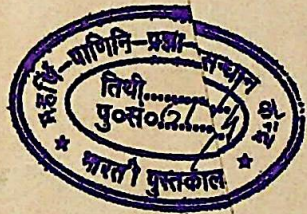 महर्षि-पाणिनि-प्रज्ञा-सन्धान
तिथी..........
पु०सं०61..........
★ भारती पुस्तकाल ★